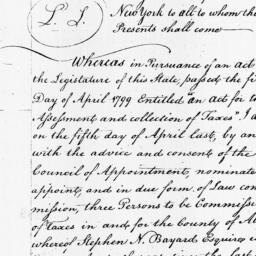 L. S.
New York to all to whom the
Presents shall come
Whereas in Pursuance of an act
the Legislature of this State, passed the fi
Day of April 1799 Entitled an act for t
Assessment and collection of Taxes" I a
on the fifth day of April last, by an
with the advice and consent of the
Council of Appointment, nominate
appoint, and in due form of Law com
mission, three Persons to be Commisse
of Taxes in and for the county of Al
whereof Stephen N. Bayard Esquire